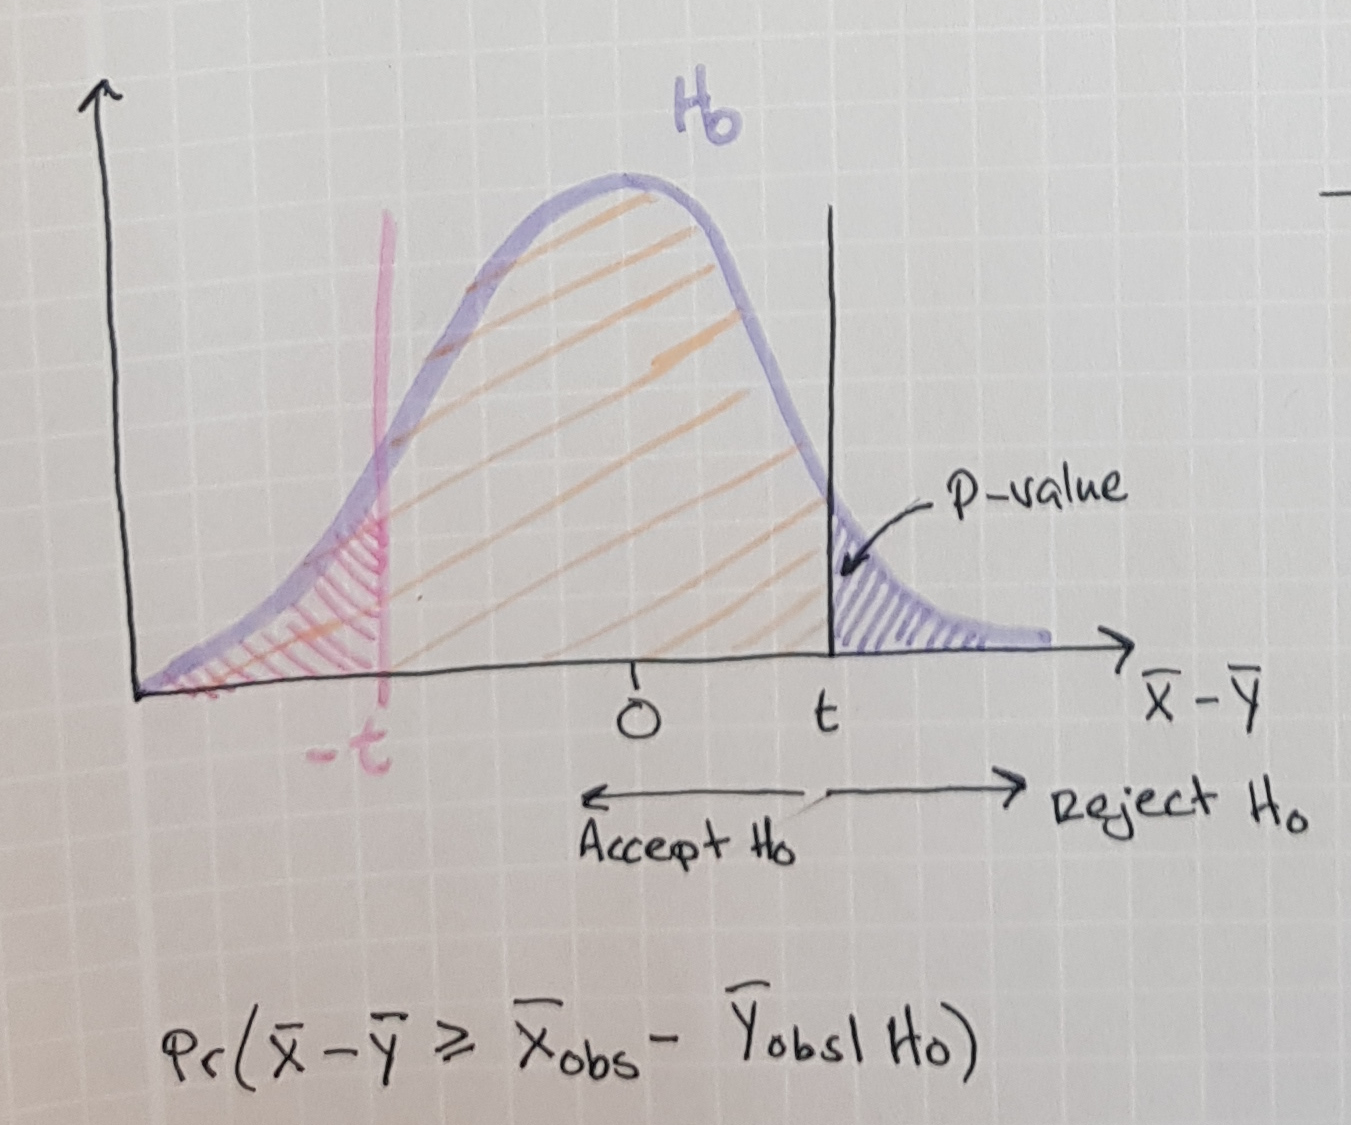 H₀
P-value
-t
0
t
X̅ - Y̅
Accept H₀
Reject H₀
Pr(X̅ - Y̅ ⩾ X̅obs - Y̅obs | H₀)